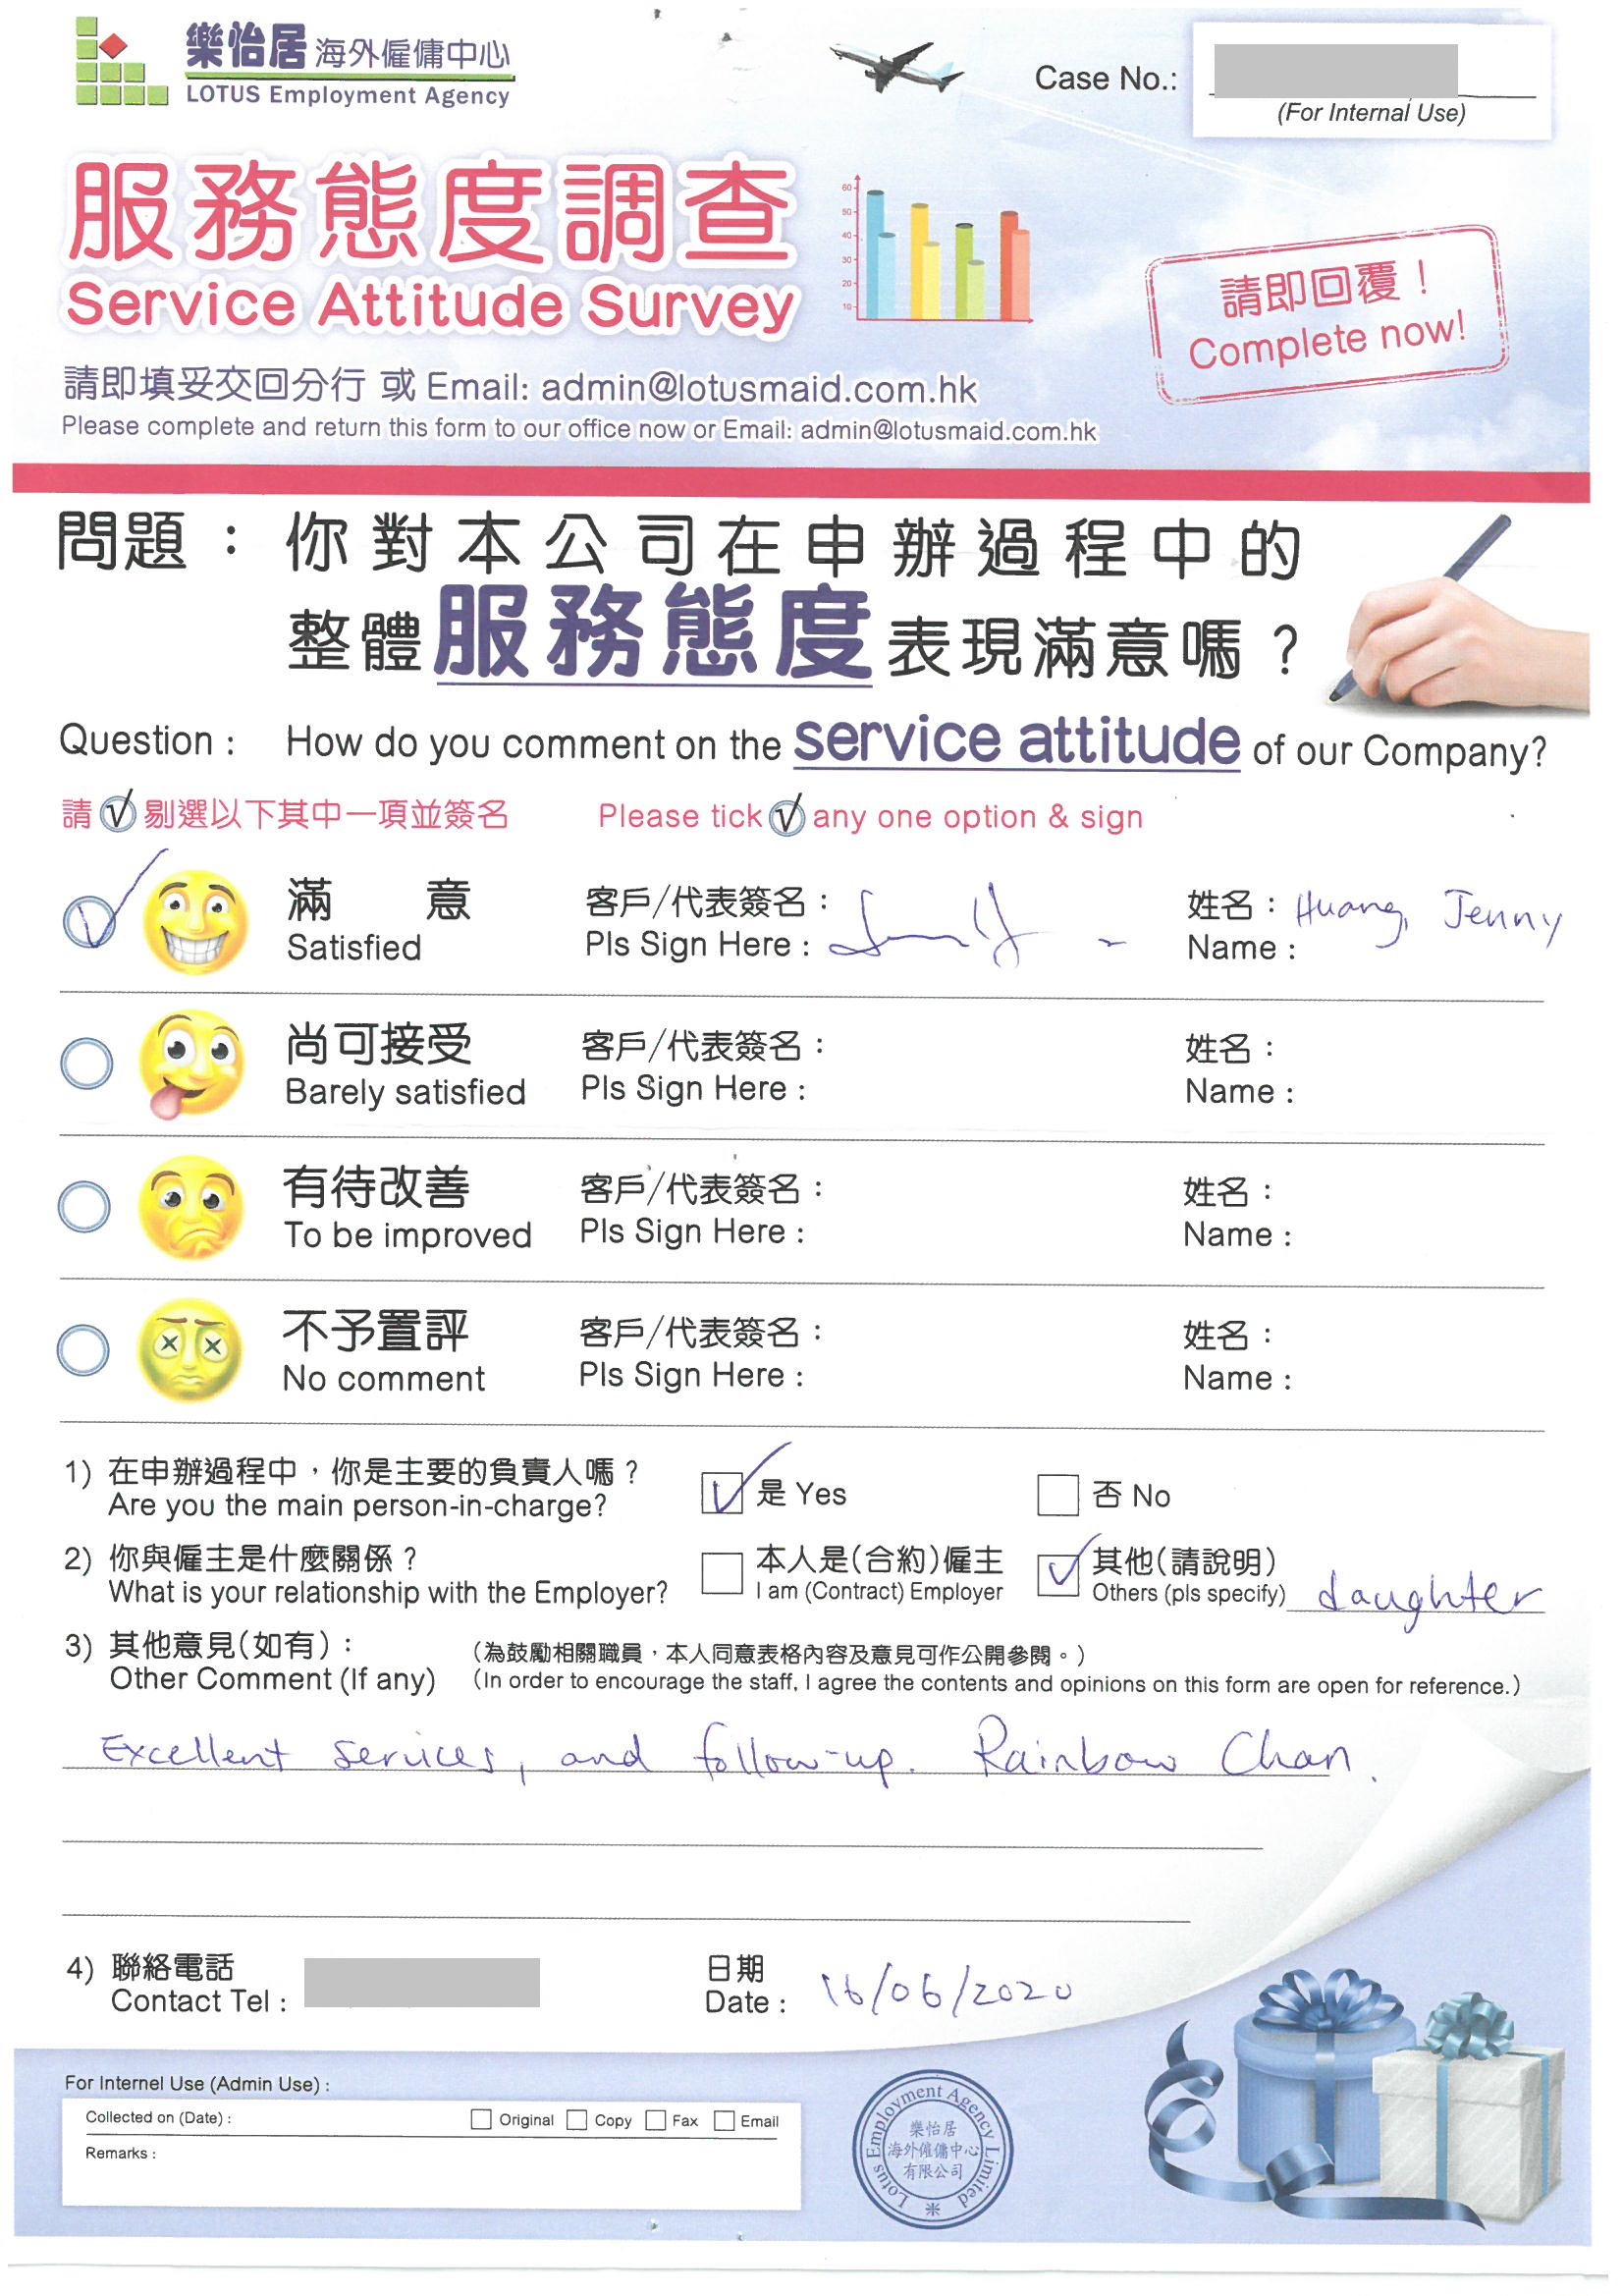 樂怡居 海外僱傭中心
LOTUS Employment Agency
Case No.:
(For Internal Use)
服務態度調查
Service Attitude Survey
60
50
40
30
20
10
請即回覆！
Complete now!
請即填妥交回分行 或 Email: admin@lotusmaid.com.hk
Please complete and return this form to our office now or Email: admin@lotusmaid.com.hk
問題： 你對本公司在申辦過程中的
整體服務態度表現滿意嗎？
Question : How do you comment on the service attitude of our Company?
請 √ 剔選以下其中一項並簽名 Please tick √ any one option & sign
滿 意 客戶/代表簽名： 姓名： Huang, Jenny
Satisfied Pls Sign Here : Name :
尚可接受 客戶/代表簽名： 姓名：
Barely satisfied Pls Sign Here : Name :
有待改善 客戶/代表簽名： 姓名：
To be improved Pls Sign Here : Name :
不予置評 客戶/代表簽名： 姓名：
No comment Pls Sign Here : Name :
1) 在申辦過程中，你是主要的負責人嗎？ 是 Yes 否 No
Are you the main person-in-charge?
2) 你與僱主是什麼關係？ 本人是(合約)僱主 其他(請說明)
What is your relationship with the Employer? I am (Contract) Employer Others (pls specify) daughter
3) 其他意見(如有)： (為鼓勵相關職員，本人同意表格內容及意見可作公開參閱。)
Other Comment (If any) (In order to encourage the staff, I agree the contents and opinions on this form are open for reference.)
Excellent services, and follow-up. Rainbow Chan.
4) 聯絡電話 日期
Contact Tel : Date : 16/06/2020
For Internel Use (Admin Use) :
Collected on (Date) : Original Copy Fax Email
Remarks :
Lotus Employment Agency Limited
樂怡居
海外僱傭中心
有限公司